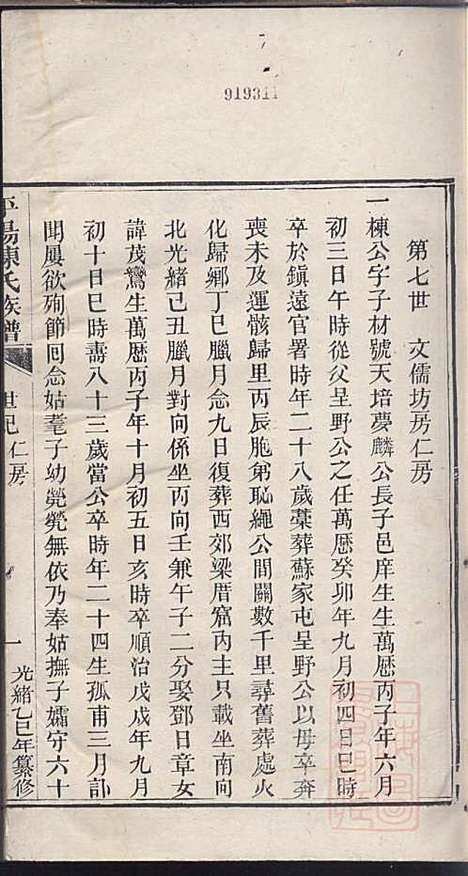 919311
第七世　文儒坊房仁房
一棟公字子材號天培夢麟公長子邑庠生生萬曆丙子年六月
初三日午時從父呈野公之任萬曆癸卯年九月初四日巳時
卒於鎮遠官署時年二十八歲藁葬蘇家屯呈野公以母卒奔
喪未及運骸歸里丙辰胞弟恥繩公間關數千里尋舊葬處火
化歸鄉丁巳臘月念九日復葬西郊梁厝窟內主只載坐南向
北光緒己丑臘月對向係坐丙向壬兼午子二分娶鄧日章女
諱茂鸞生萬曆丙子年十月初五日亥時卒順治戊戌年九月
初十日巳時壽八十三歲當公卒時年二十四生孤甫三月訃
聞屢欲殉節囘念姑耄子幼煢煢無依乃奉姑撫子孀守六十
平陽陳氏族譜
世紀　仁房
一
光緒乙巳年纂修